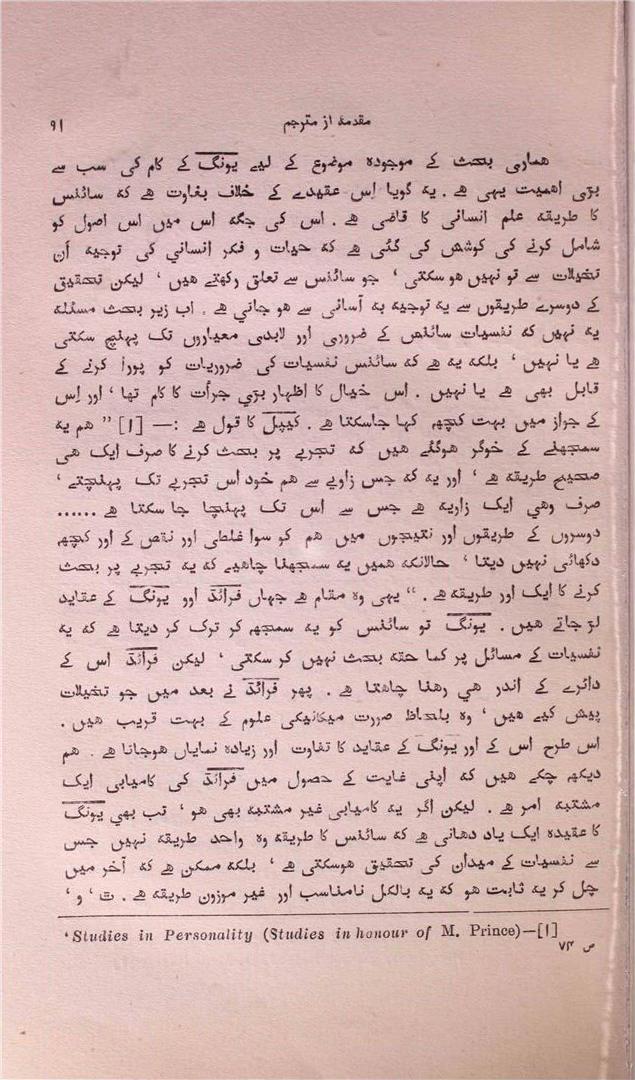 مقدمہ از مترجم ۹۱
ہماری بحث کے موجودہ موضوع کے لیے یونگ کے کام کی سب سے
بڑی اہمیت یہی ہے ۔ یہ گویا اِس عقیدے کے خلاف بغاوت ہے کہ سائنس
کا طریقہ علم انسانی کا قاضی ہے ۔ اس کی جگہ اس میں اس اصول کو
شامل کرنے کی کوشش کی گئی ہے کہ حیات و فکر انسانی کی توجیہ اُن
تخیلات سے تو نہیں ہوسکتی ‘ جو سائنس سے تعلق رکھتے ہیں ‘ لیکن تحقیق
کے دوسرے طریقوں سے یہ توجیہ بہ آسانی سے ہو جاتی ہے ۔ اب زیر بحث مسئلہ
یہ نہیں کہ نفسیات سائنس کے ضروری اور لابدی معیاروں تک پہنچ سکتی
ہے یا نہیں ‘ بلکہ یہ ہے کہ سائنس نفسیات کی ضروریات کو پورا کرنے کے
قابل بھی ہے یا نہیں ۔ اس خیال کا اظہار بڑی جرأت کا کام تھا ‘ اور اِس
کے جواز میں بہت کچھہ کہا جاسکتا ہے ۔ کیپل کا قول ہے :— [۱] ” ہم یہ
سمجھنے کے خوگر ہوگئے ہیں کہ تجربے پر بحث کرنے کا صرف ایک ہی
صحیح طریقہ ہے ‘ اور یہ کہ جس زاویے سے ہم خود اس تجربے تک پہنچتے ‘
صرف وہی ایک زاریہ ہے جس سے اس تک پہنچا جا سکتا ہے ......
دوسروں کے طریقوں اور نتیجوں میں ہم کو سوا غلطی اور نقص کے اور کچھہ
دکھائی نہیں دیتا ‘ حالانکہ ہمیں یہ سمجھنا چاہیے کہ یہ تجربے پر بحث
کرنے کا ایک اور طریقہ ہے ۔ “ یہی وہ مقام ہے جہاں فرائڈ اوو یونگ کے عقاید
لڑ جاتے ہیں ۔ یونگ تو سائنس کو یہ سمجھہ کر ترک کر دیتا ہے کہ یہ
نفسیات کے مسائل پر کما حقہ بحث نہیں کر سکتی ‘ لیکن فرائڈ اس کے
دائرے کے اندر ہی رہنا چاہتا ہے ۔ پھر فرائڈ نے بعد میں جو تخیلات
پیش کیے ہیں ‘ وہ بلحاظ صررت میکانیکی علوم کے بہت قریب ہیں ۔
اس طرح اس کے اور یونگ کے عقاید کا تفاوت اور زیادہ نمایاں ہوجاتا ہے ۔ ہم
دیکھہ چکے ہیں کہ اپنی غایت کے حصول میں فرائڈ کی کامیابی ایک
مشتبہ امر ہے ۔ لیکن اگر یہ کامیابی غیر مشتبہ بھی ہو ‘ تب بھی یونگ
کا عقیدہ ایک یاد دہانی ہے کہ سائنس کا طریقہ وہ واحد طریقہ نہیں جس
سے نفسیات کے میدان کی تحقیق ہوسکتی ہے ‘ بلکہ ممکن ہے کہ آخر میں
چل کر یہ ثابت ہو کہ یہ بالکل نامناسب اور غیر موزون طریقہ ہے ۔ ت ‘ و ‘
‘Studies in Personality (Studies in honour of M. Prince)—[۱]
ص ۷۴